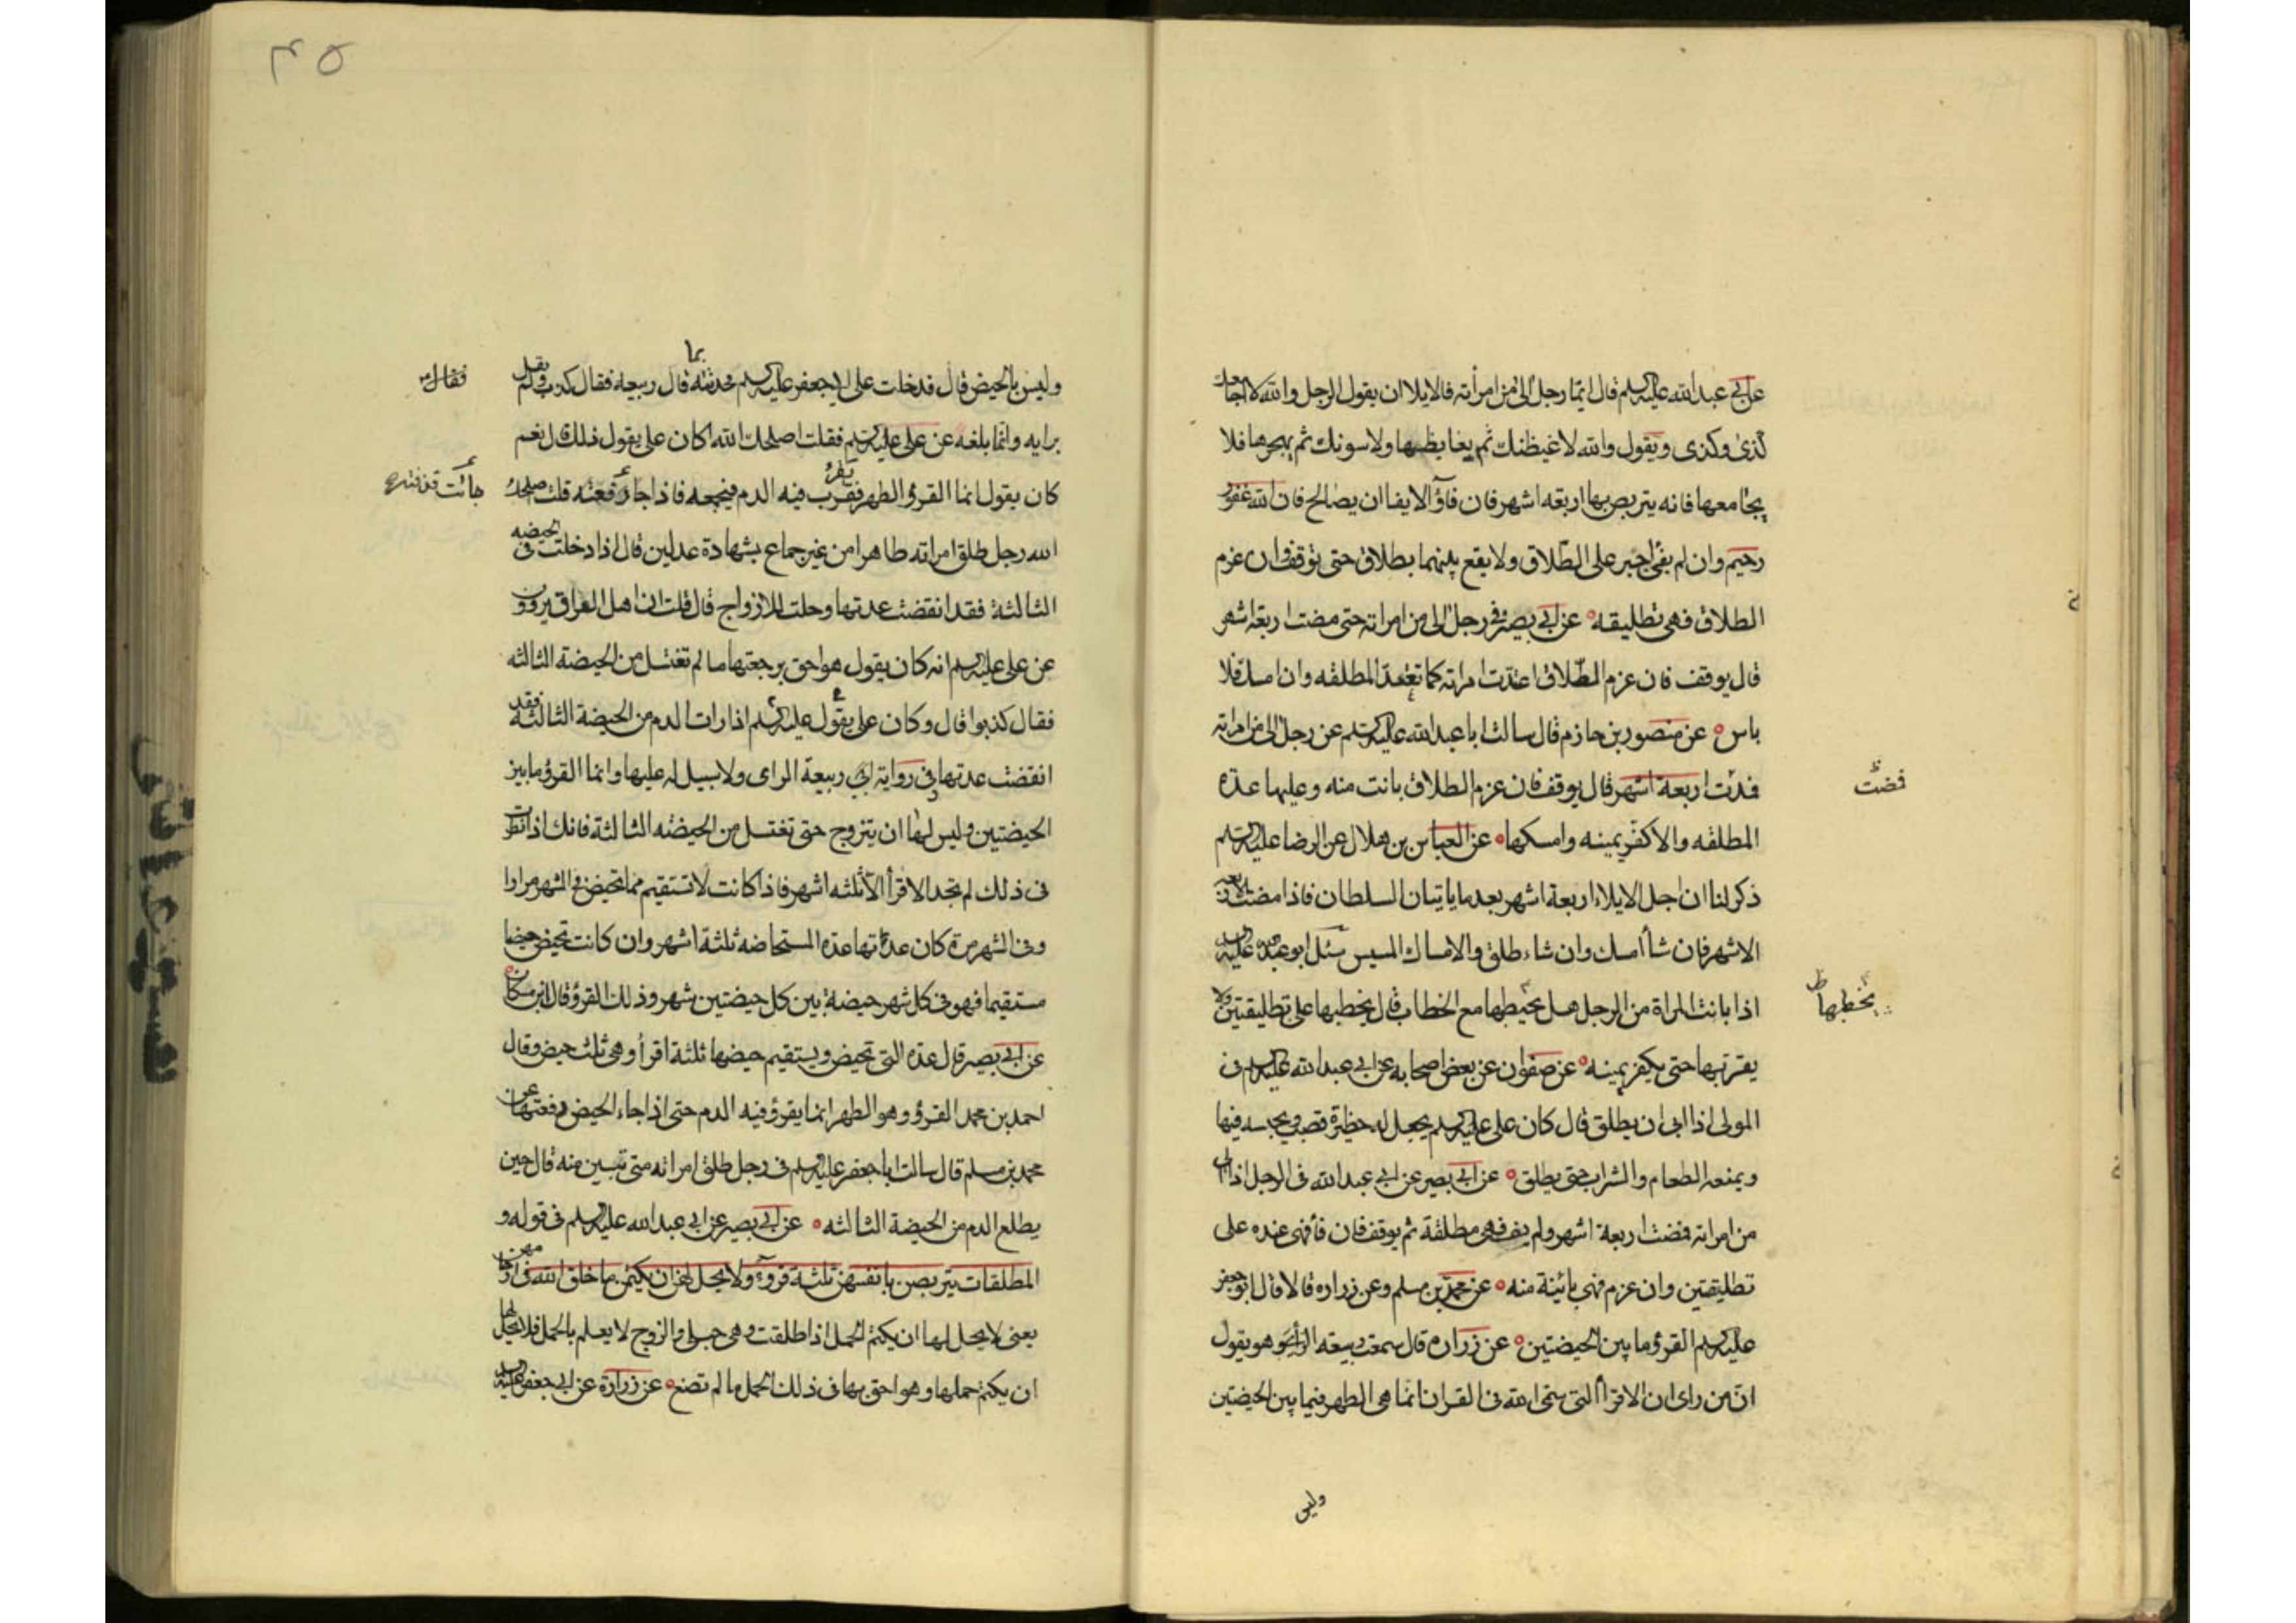 عن ابی عبدالله علیه السلم قال ایما رجل الی من امرأته فالایلا ان یقول الرجل والله لا اجامعك
کذی وکذی ویقول والله لاغیظنك ثم یغایظها ولاسونك ثم یهجرها فلا
یجامعها فانه یتربص بها اربعه اشهر فان فاؤ الایفا ان یصالح فان الله غفور
رحیم وان لم یفئ اجبر علی الطلاق ولا یقع بینهما بطلاق حتی توقف وان عزم
الطلاق فهی تطلیقه عن ابی بصیر فی رجل الی من امراته حتی مضت اربعة اشهر
قال یوقف فان عزم الطلاق اعتدت امراته کما تعتد المطلقه وان امسك فلا
باس عن منصور بن حازم قال سالت ابا عبدالله علیه السلم عن رجل الی من امراته
فمدت اربعة اشهر قال یوقف فان عزم الطلاق بانت منه وعلیها عدة
قضت
المطلقه والا کفر یمینه وامسکها عن العباس بن هلال عن الرضا علیه السلم
ذکر لنا ان اجل الایلاء اربعة اشهر بعد ما یاتیان السلطان فاذا مضت الاربعه
الاشهر فان شأ امسك وان شاء طلق والامساك المسیس سئل ابو عبدالله علیه السلم
اذا بانت المراة من الرجل هل یخیطها مع الخطاب قال یخطبها علی تطلیقتین ولا
یخطبها
یقربها حتی یکفر یمینه عن صفوان عن بعض اصحابه عن ابی عبدالله علیه السلم فی
المولی اذا ابی ان یطلق قال کان علی علیه السلم یجعل له حظیرة قصب ویحبسه فیها
ویمنعه الطعام والشراب حتی یطلق عن ابی بصیر عن ابی عبدالله فی الرجل اذا الی
من امراته فمضت اربعة اشهر ولم یف فهی مطلقة ثم یوقف فان فا فهی عنده علی
تطلیقتین وان عزم فهی بائنة منه عن محمد بن مسلم وعن زراره قالا قال ابو جعفر
علیه السلم القرؤ ما بین الحیضتین عن زراره قال سمعت ربیعه الرأی وهو یقول
ان من رای ان الاقرأ التی سمی الله فی القران انما هی الطهر فیما بین الحیضتین
ولیس
۴۵
ولیس بالحیض قال فدخلت علی ابی جعفر علیه السلم فحدثته بما قال ربیعه فقال کذب ولم یقل
فقال
برایه وانما بلغه عن علی علیه السلم فقلت اصلحك الله اکان علی یقول ذلك قال نعم
کان یقول انما القرؤ الطهر فقرب فیه الدم فیجمعه فاذا جاء دفعته قلت اصلحك
جائت قذفته
الله رجل طلق امراته طاهرا من غیر جماع بشهادة عدلین قال اذا دخلت فی الحیضه
الثالثة فقد انقضت عدتها وحلت للازواج قال قلت ان اهل العراق یروون
عن علی علیه السلم انه کان یقول هو احق برجعتها ما لم تغتسل من الحیضة الثالثه
فقال کذبوا قال وکان علی یقول علیه السلم اذا رات الدم من الحیضة الثالثة فقد
انقضت عدتها وفی روایة ابی ربیعة الرای ولا سبیل له علیها وانما القرؤ ما بین
الحیضتین ولیس لها ان یتزوج حتی تغتسل من الحیضه الثالثة فانك اذا نظرت
فی ذلك لم تجد الاقرأ الا ثلثه اشهر فاذا کانت لا تستقیم مما تحیض فی الشهر مرارا
وفی الشهر مرة کان عدتها عدة المستحاضه ثلثة اشهر وان کانت تحیض حیضا
مستقیما فهو فی کل شهر حیضة بین کل حیضتین شهر وذلك القرؤ وقال ابن مسکان
عن ابی بصیر قال عدة التی تحیض ویستقیم حیضها ثلثة اقرأ وهی ثلث حیض وقال
احمد بن محمد القرؤ وهو الطهر انما یقرؤ فیه الدم حتی اذا جاء الحیض دفعتها عن
محمد بن مسلم قال سالت ابا جعفر علیه السلم فی رجل طلق امراته متی تبین منه قال حین
یطلع الدم من الحیضة الثالثه عن ابی بصیر عن ابی عبدالله علیه السلم فی قوله و
المطلقات یتربصن بانفسهن ثلثة قروء ولا یحل لهن ان یکتمن ما خلق الله فی ارحامهن
یعنی لا یحل لها ان یکتم الحمل اذا طلقت وهی حبلی والزوج لا یعلم بالحمل فلا یحل لها
ان یکتم حملها وهو احق بها فی ذلك الحمل ما لم تضع عن زرارة عن ابی جعفر علیه السلم